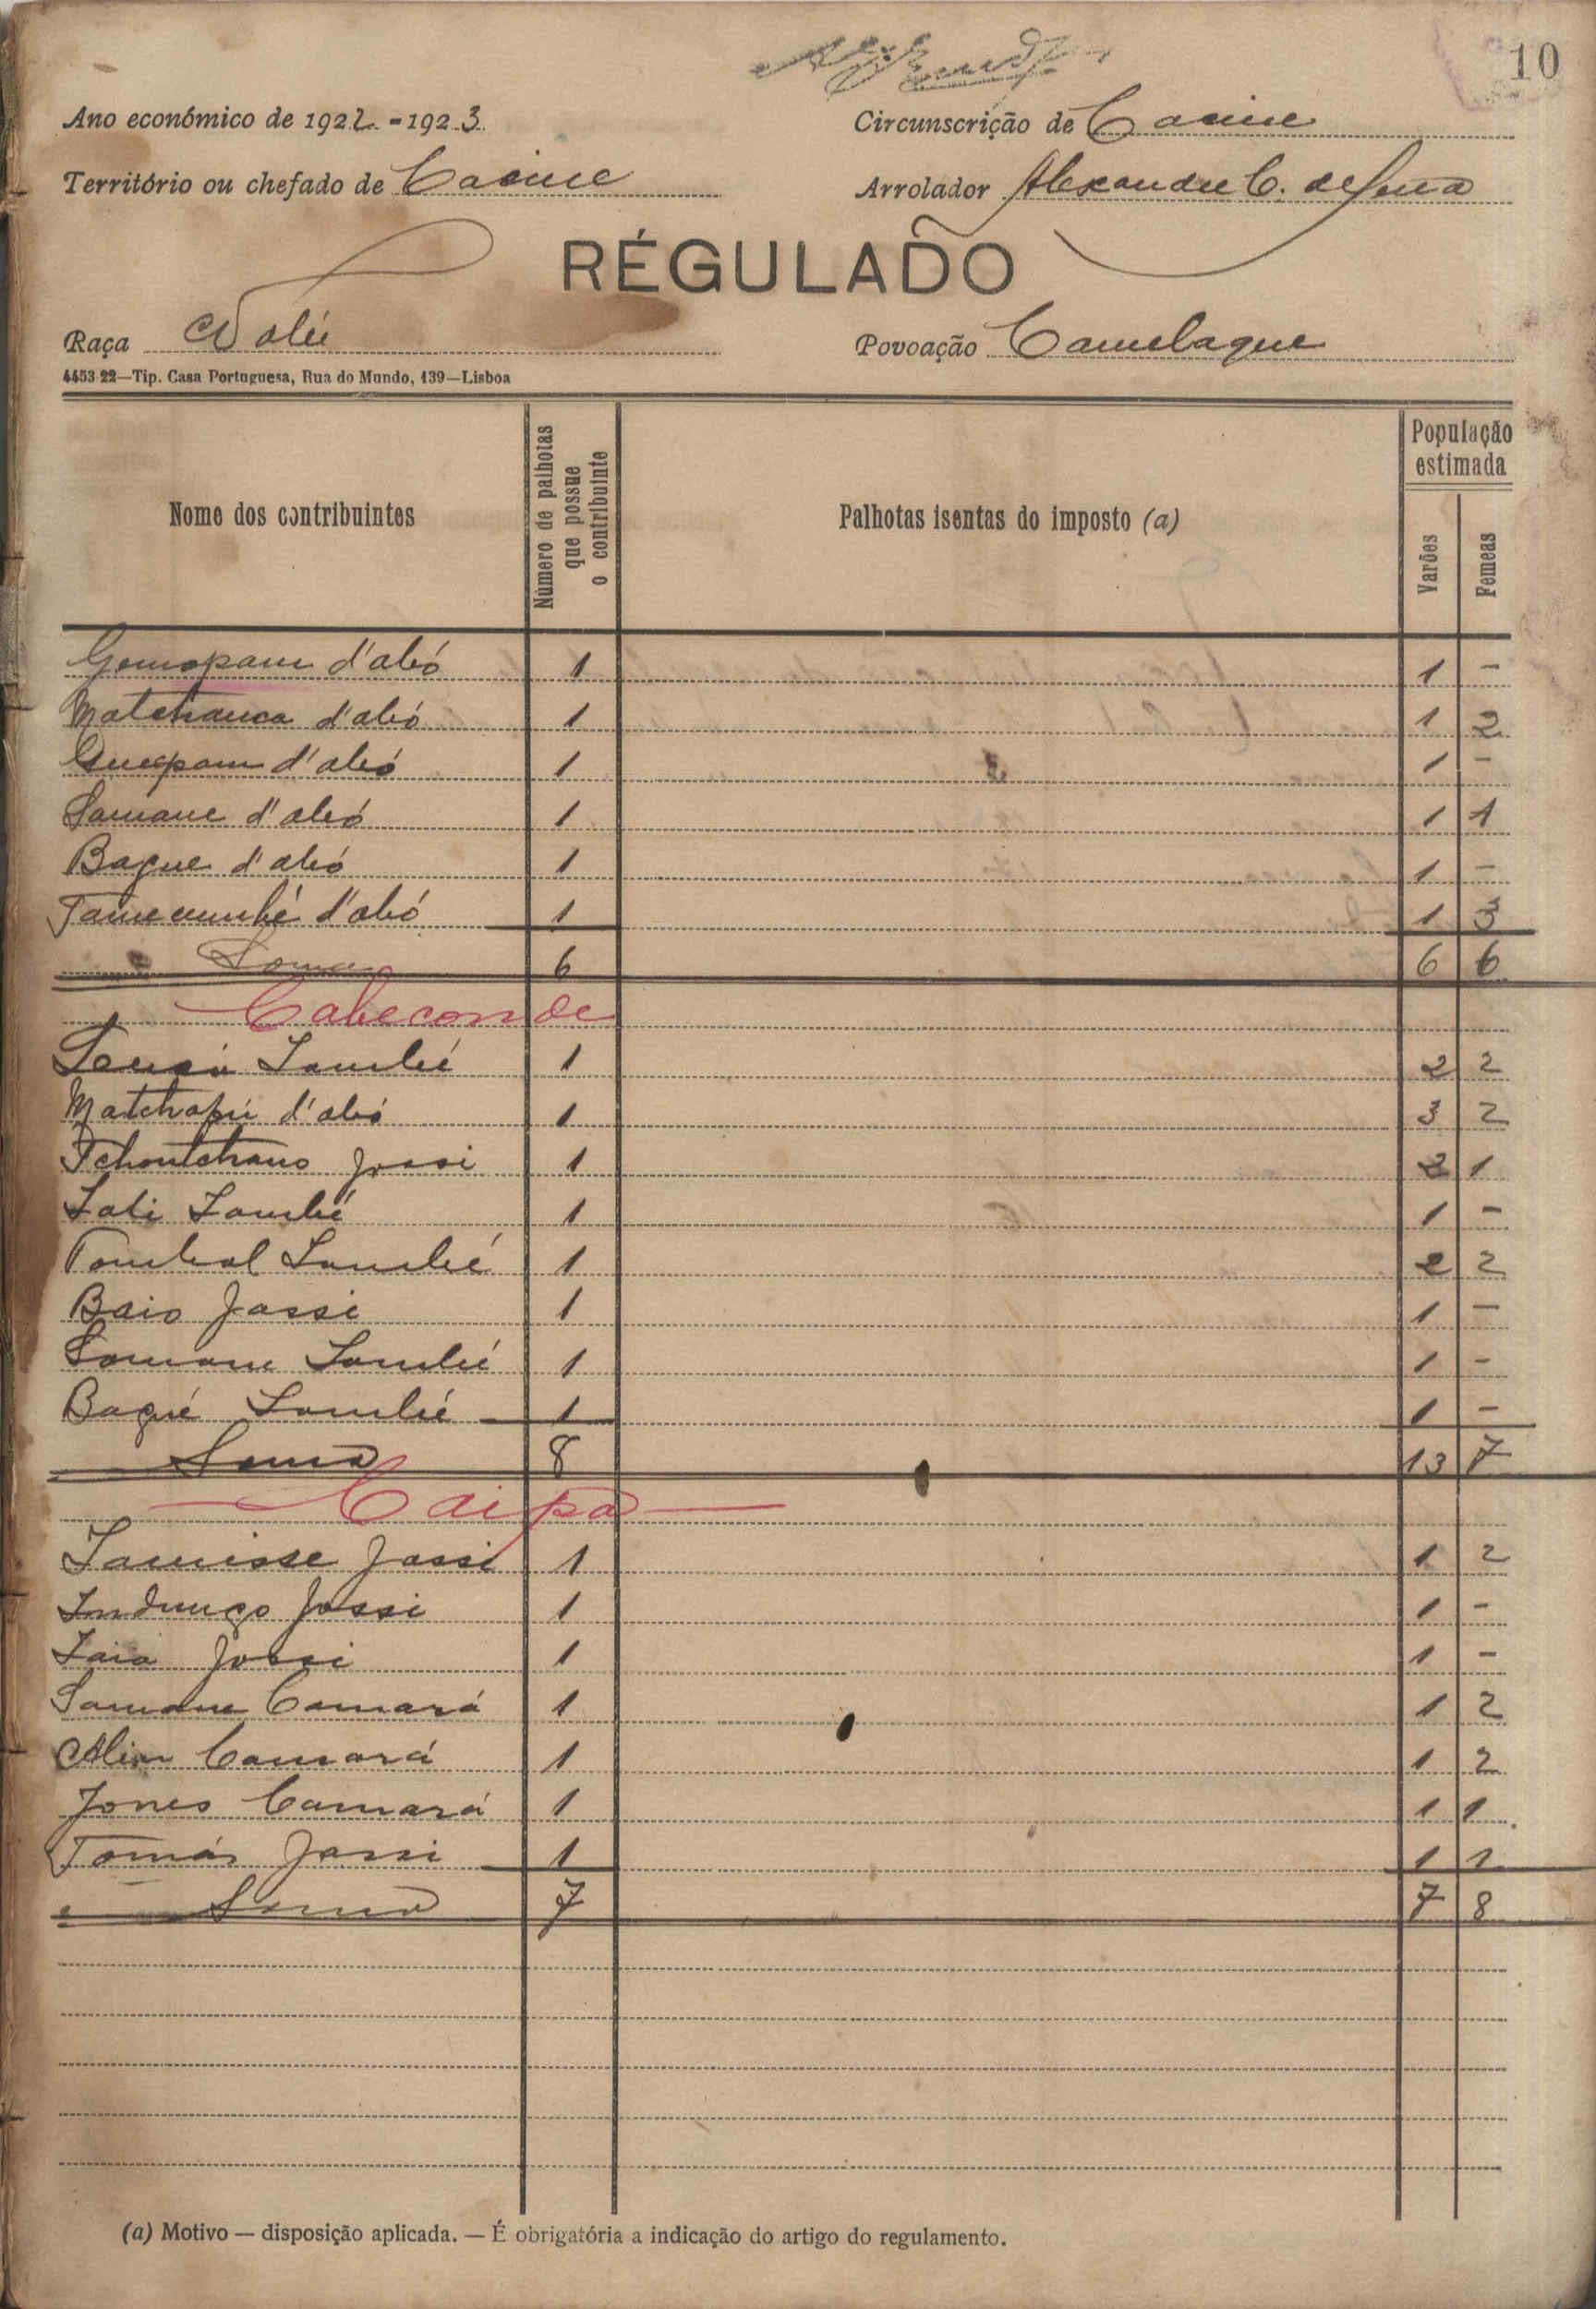 10
Ano económico de 1922-1923 Circunscrição de Cacine
Território ou chefado de Cacine Arrolador Alexandre C. de Sena
RÉGULADO
Raça Nalú Povoação Camelaque
4453-22—Tip. Casa Portuguesa, Rua do Mundo, 139—Lisboa
Nome dos contribuintes Número de palhotas que possue o contribuinte Palhotas isentas do imposto (a) População estimada Varões Femeas
d'abó 1 1 -
Matchauca d'abó 1 1 2
d'abó 1 1 -
Samane d'abó 1 1 1
Baque d'abó 1 1 -
d'abó 1 1 3
Soma 6 6 6
Cabeconde
Sambú 1 2 2
d'abó 1 3 2
Jassi 1 2 1
1 1 -
Tombal 1 2 2
Baio Jassi 1 1 -
1 1 -
Baqué 1 1 -
Soma 8 13 7
Caipa
Lamisse Jassi 1 1 2
Jassi 1 1 -
Jassi 1 1 -
Samane Camará 1 1 2
Camará 1 1 2
Jones Camará 1 1 1
Tomás Jassi 1 1 1
Soma 7 7 8
(a) Motivo — disposição aplicada. — É obrigatória a indicação do artigo do regulamento.